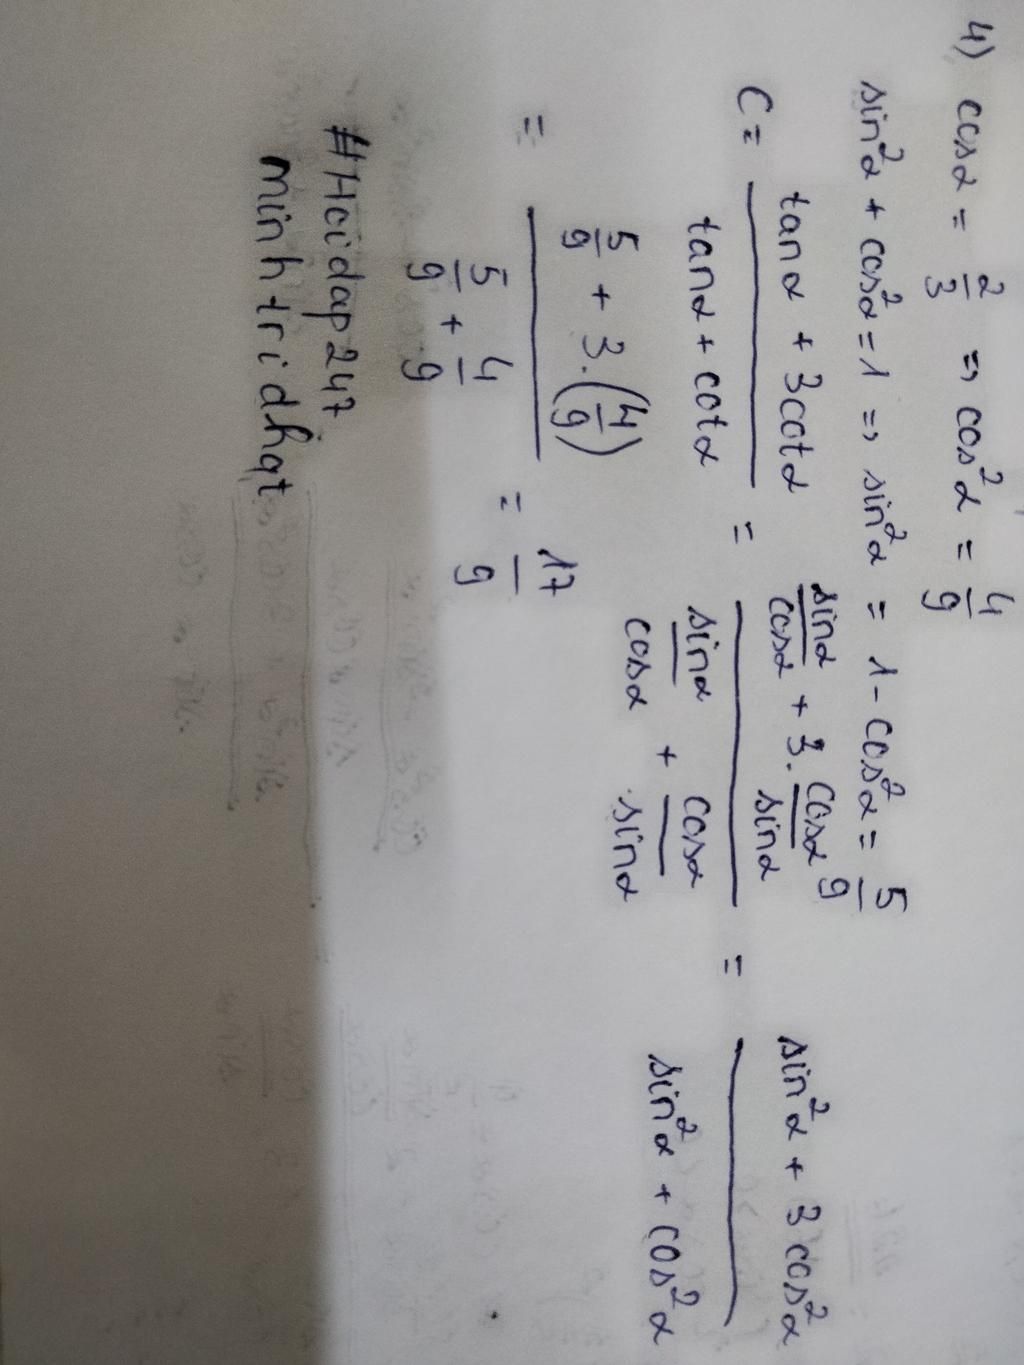 4) cosα = 2/3 => cos²α = 4/9
sin²α + cos²α = 1 => sin²α = 1 - cos²α = 5/9
C = (tanα + 3cotα)/(tanα + cotα) = (sinα/cosα + 3.cosα/sinα)/(sinα/cosα + cosα/sinα) = (sin²α + 3cos²α)/(sin²α + cos²α)
= (5/9 + 3.(4/9))/(5/9 + 4/9) = 17/9
#Hoidap247
minhtridhqt